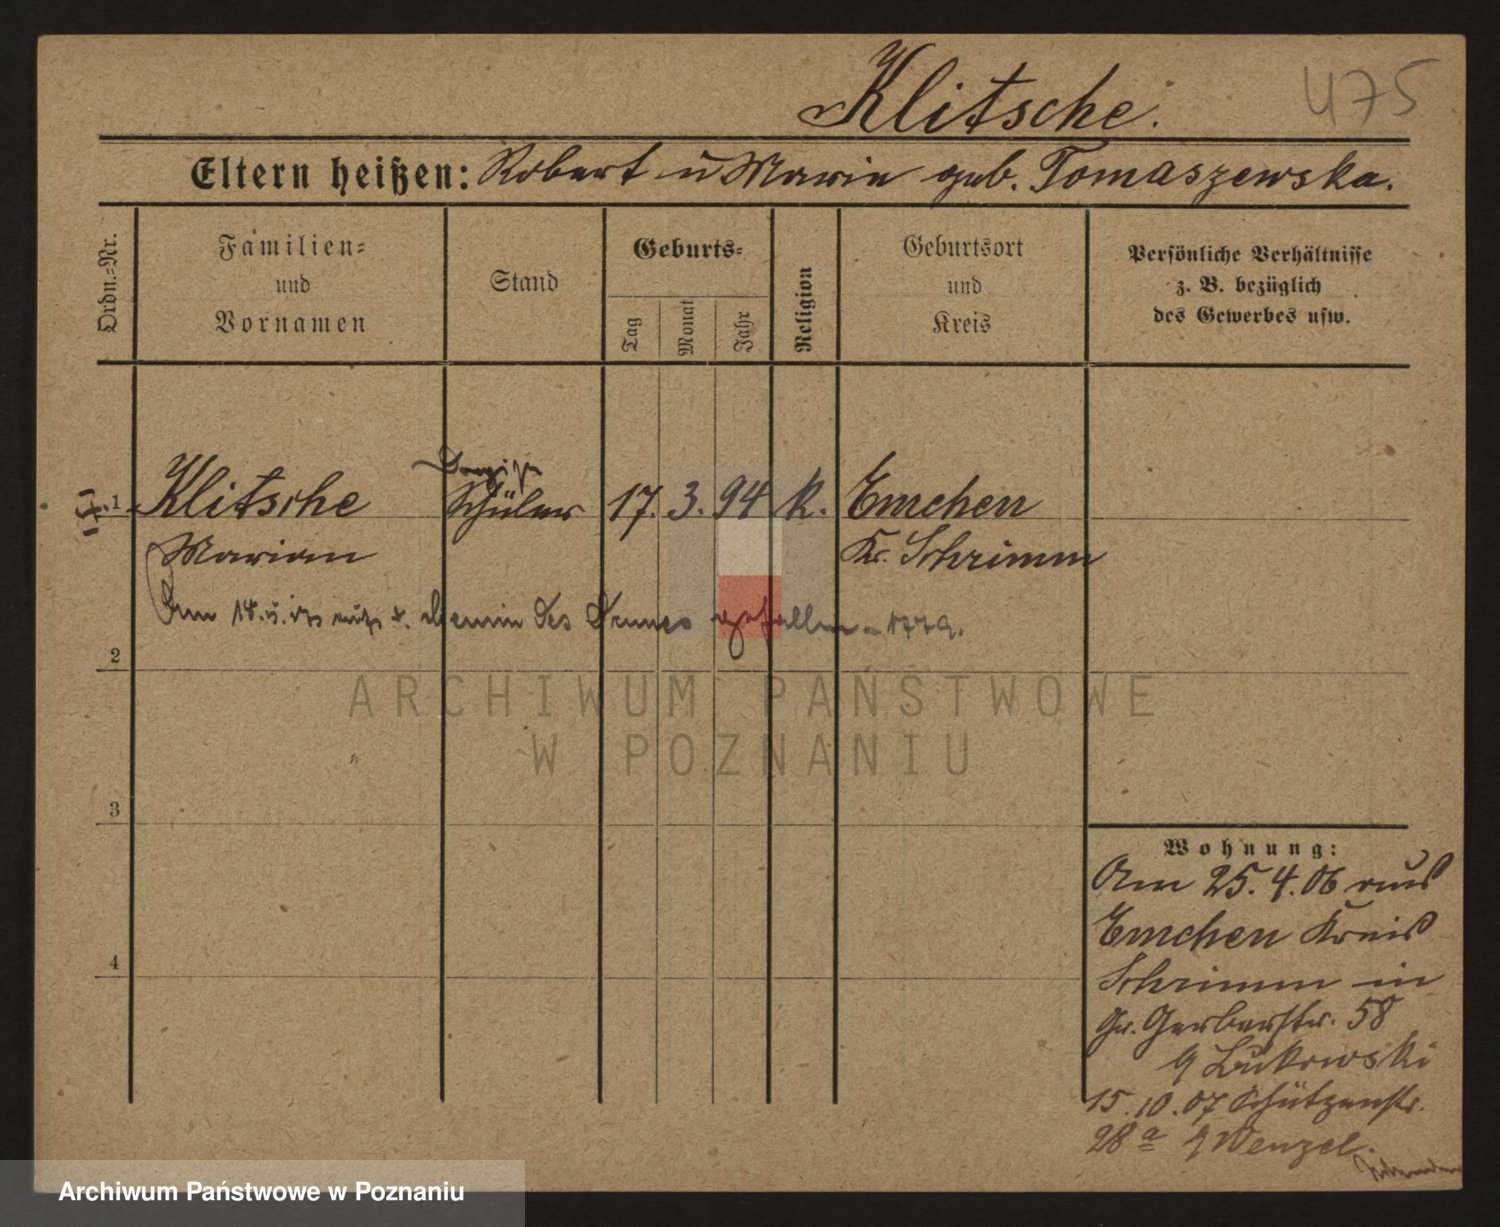 Klitsche.
475
Eltern heißen: Robert u Marie geb. Tomaszewska.
Ordn.-Nr.
Familien-
und
Vornamen
Stand
Geburts-
Tag
Monat
Jahr
Religion
Geburtsort
und
Kreis
Persönliche Verhältnisse
z. B. bezüglich
des Gewerbes usw.
1 Klitsche Schüler 17. 3. 94 k. Emchen
Marian Kr. Schrimm
Am des gefallen
2
ARCHIWUM PAŃSTWOWE
W POZNANIU
3
4
Wohnung:
Am 25.4.06 aus
Emchen Kreis
Schrimm in
Gr. Gerberstr. 58
Lukowski
15.10.07 Schützenstr.
28a Wenzel.
Archiwum Państwowe w Poznaniu